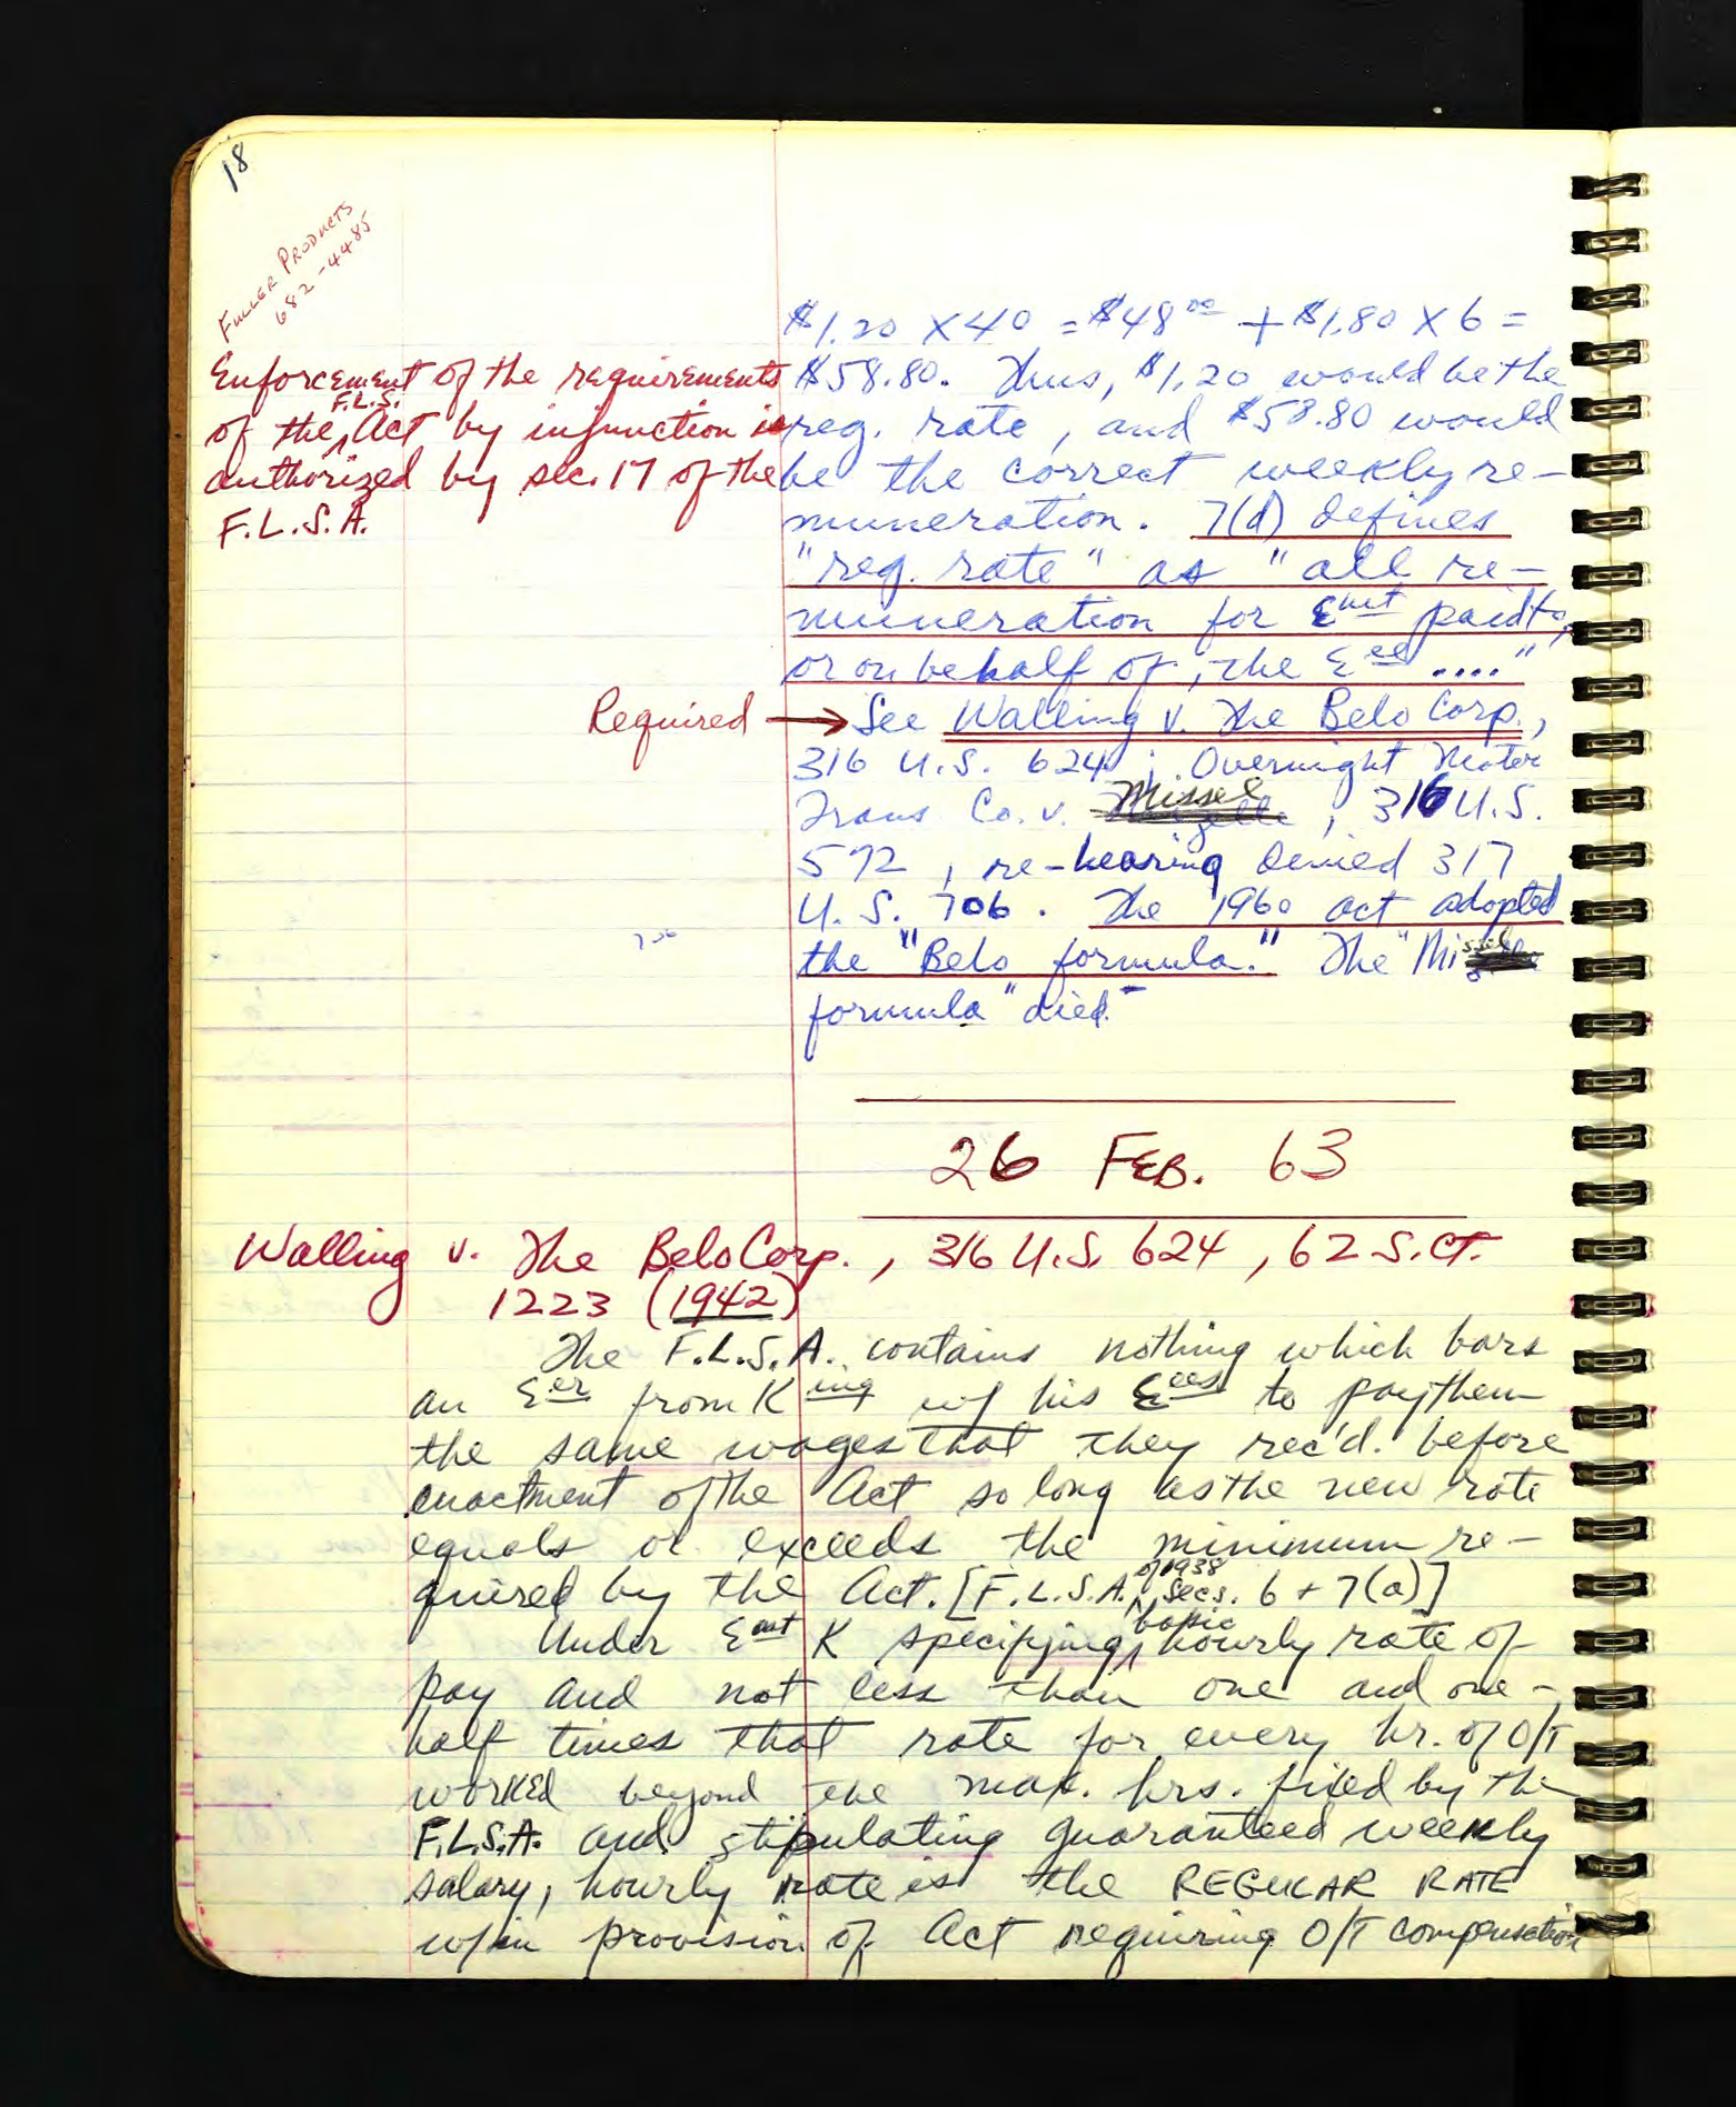 18
FULLER PRODUCTS
682-4485
$1.20 X 40 = $48 00 + $1.80 X 6 =
$58.80. Thus, $1.20 would be the
reg. rate, and $58.80 would
be the correct weekly re-
muneration. 7(d) defines
"reg. rate" as "all re-
muneration for Emt paid to,
or on behalf of, the Eee ...."
Enforcement of the requirements
of the F.L.S. Act by injunction is
authorized by sec. 17 of the
F.L.S.A.
Required → See Walling v. The Belo Corp.,
316 U.S. 624; Overnight Motor
Trans Co. v. Missel, 316 U.S.
572, re-hearing denied 317
U.S. 706. The 1960 act adopted
706
the "Belo formula." The "Missel
formula" died.
26 FEB. 63
Walling v. The Belo Corp., 316 U.S. 624, 62 S.CT.
1223 (1942)
The F.L.S.A. contains nothing which bars
an Eer from King w/ his Eees to pay them
the same wages that they rec'd. before
enactment of the Act so long as the new rate
equals or exceeds the minimum re-
quired by the Act. [F.L.S.A. of 1938, Secs. 6 + 7(a)]
Under Emt K specifying basic hourly rate of
pay and not less than one and one-
half times that rate for every hr. of O/T
worked beyond the max. hrs. fixed by the
F.L.S.A. and stipulating guaranteed weekly
salary, hourly rate is the REGULAR RATE
w/in provision of Act requiring O/T compensation